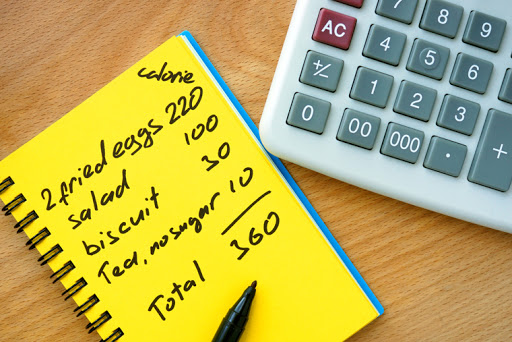 calorie
2 fried eggs 220
salad 100
biscuit 30
Tea, no sugar 10
Total 360
7 8 9
AC 4 5 6
+/- 1 2 3 +
0 00 000 .